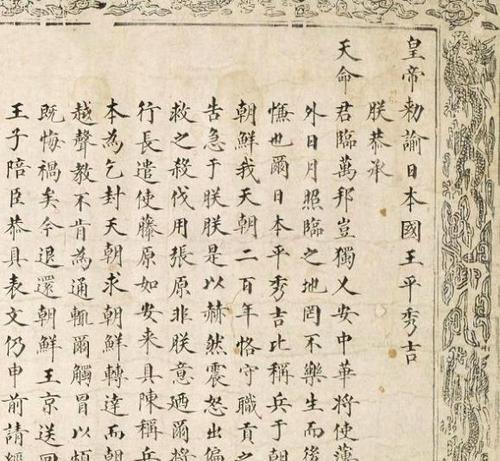 皇帝勅諭日本國王平秀吉
朕恭承
天命君臨萬邦豈獨乂安中華將使薄
外日月照臨之地罔不樂生而後
慊也爾日本平秀吉比稱兵于朝
朝鮮我天朝二百年恪守職貢之
告急于朕朕是以赫然震怒出偏
救之殺伐用張原非朕意廼爾將
行長遣使藤原如安来具陳稱兵
本為乞封天朝求朝鮮轉達而朝
越聲教不肯為通輒爾觸冒以煩
既悔禍矣今退還朝鮮王京送回
王子陪臣恭具表文仍申前請經